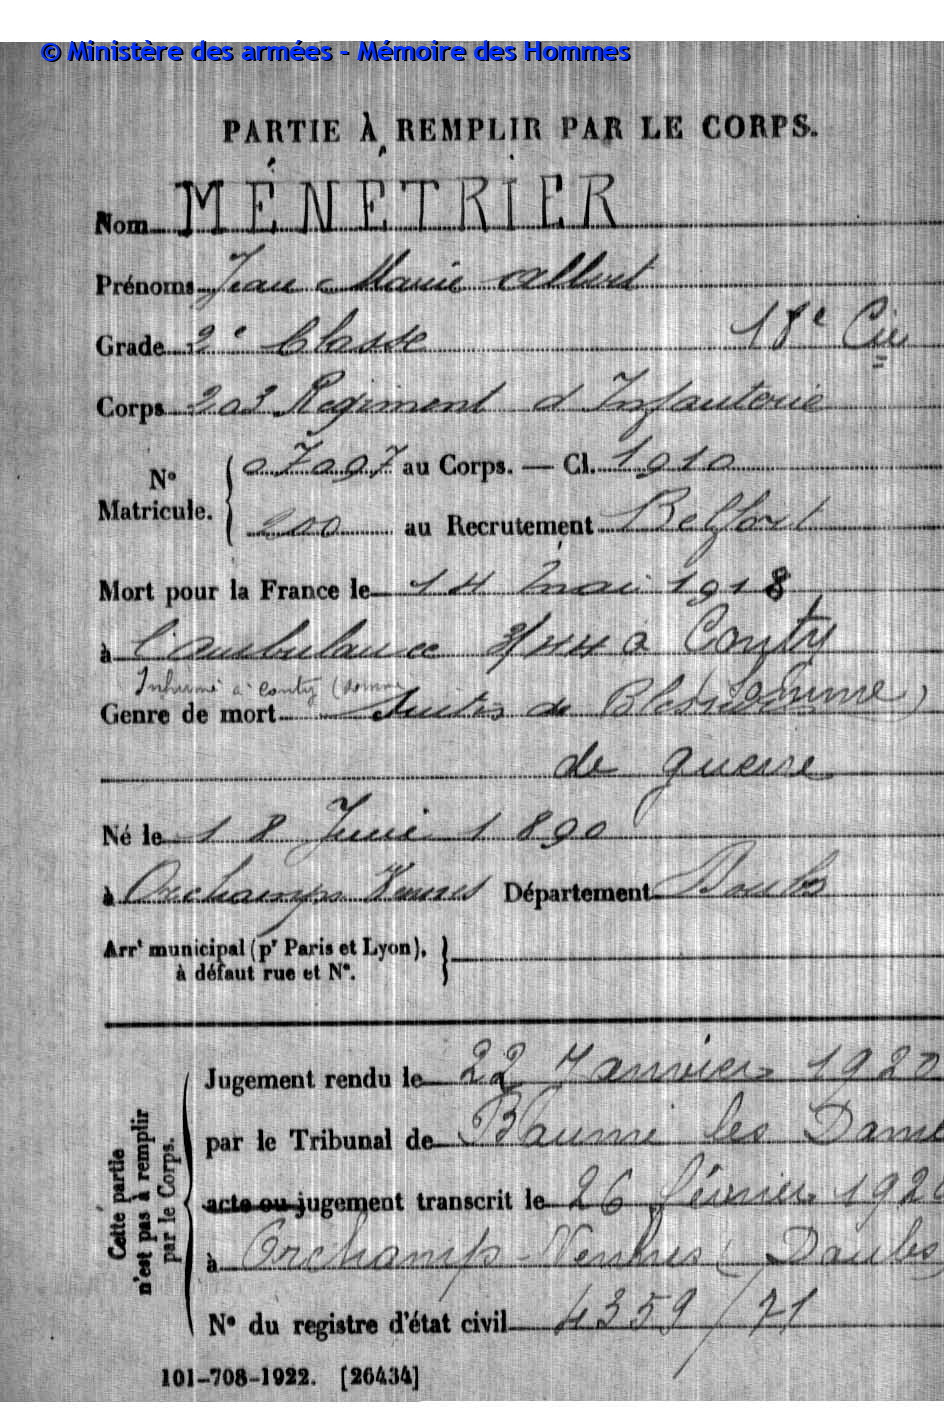 © Ministère des armées - Mémoire des Hommes
PARTIE À REMPLIR PAR LE CORPS.
Nom MÉNÉTRIER
Prénoms Jean Marie Albert
Grade 2e Classe 18e Cie
Corps 203 Régiment d'Infanterie
No Matricule. { 07097 au Corps. — Cl. 1910
200 au Recrutement Belfort
Mort pour la France le 14 mai 1918
à l'ambulance 3/44 à Conty
Inhumé à Conty (Somme
(Somme)
Genre de mort Suites de Blessures
de guerre
Né le 18 Juin 1890
à Orchamps Vennes Département Doubs
Arrt municipal (pr Paris et Lyon),
à défaut rue et No.
Cette partie n'est pas à remplir par le Corps.
Jugement rendu le 22 Janvier 1920
par le Tribunal de Baume les Dames
acte ou jugement transcrit le 26 février 1920
à Orchamps-Vennes (Doubs)
No du registre d'état civil 4359/71
101-708-1922. [26434]